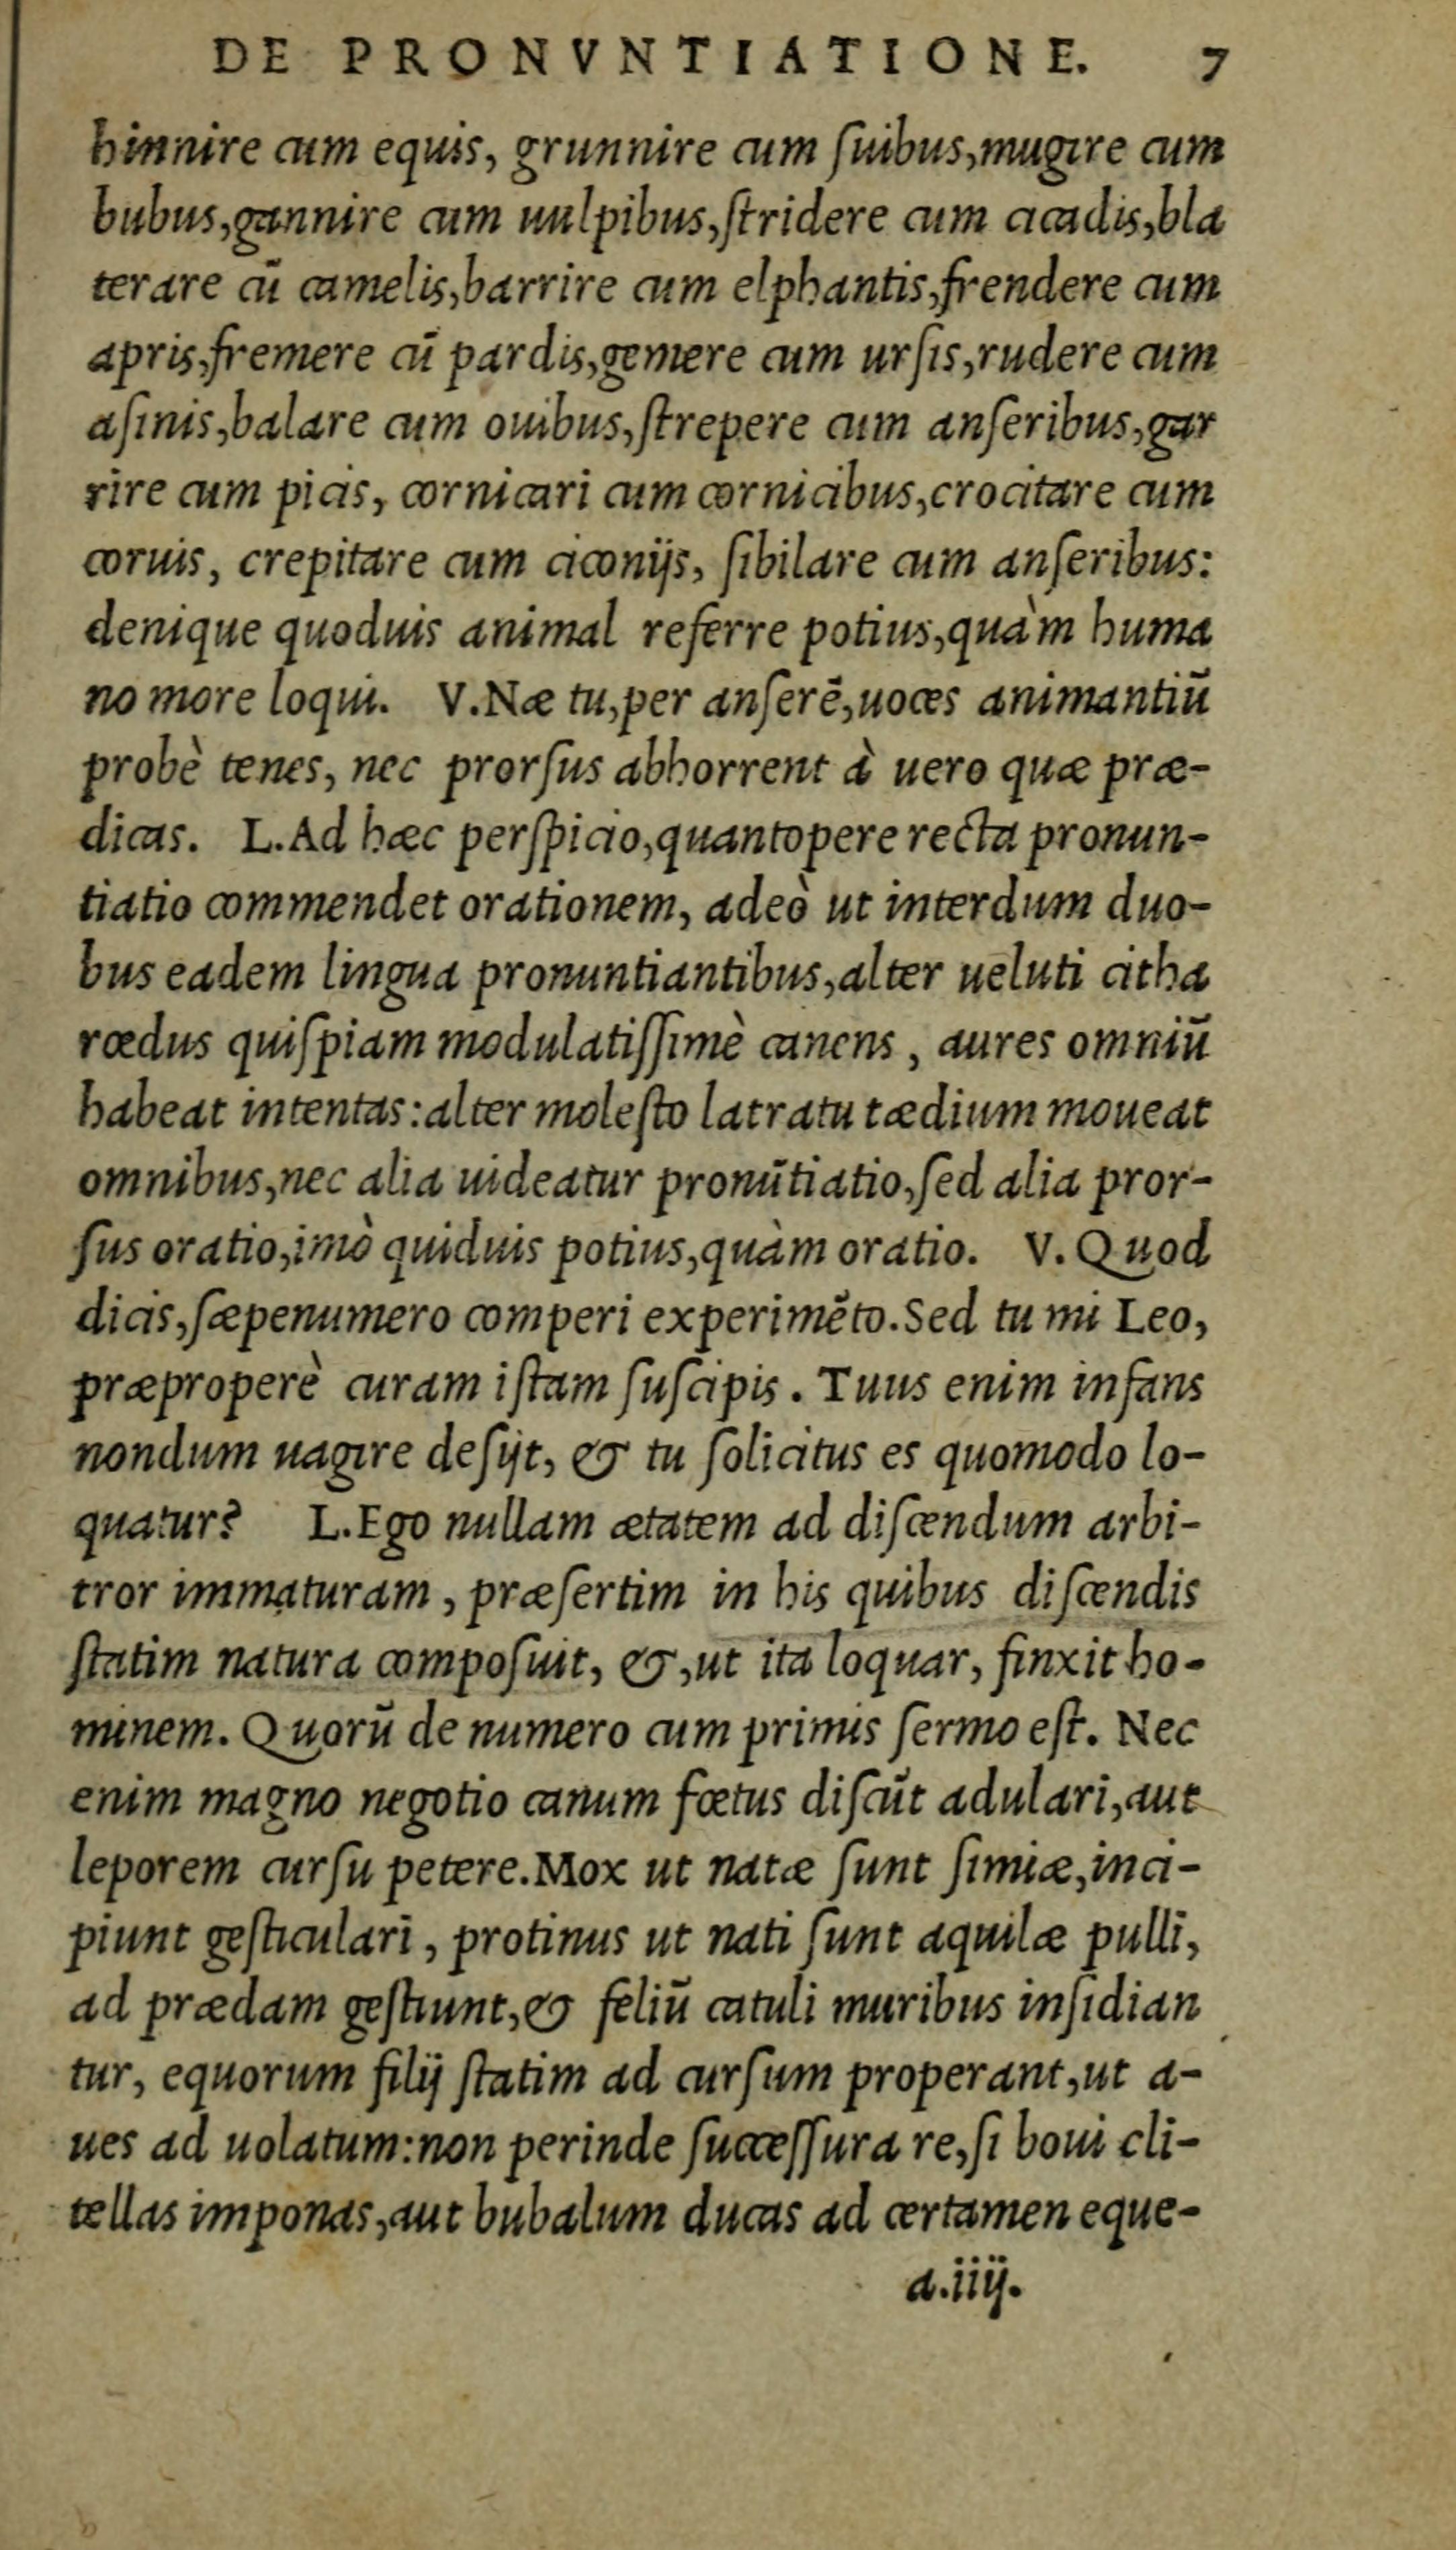 DE PRONVNTIATIONE. 7
hinnire cum equis, grunnire cum ſuibus,mugire cum
bubus,gannire cum uulpibus,ſtridere cum cicadis,bla
terare cū camelis,barrire cum elphantis,frendere cum
apris,fremere cū pardis,gemere cum urſis,rudere cum
aſinis,balare cum ouibus,ſtrepere cum anſeribus,gar
rire cum picis, cornicari cum cornicibus,crocitare cum
coruis, crepitare cum ciconijs, ſibilare cum anſeribus:
denique quoduis animal referre potius,quàm huma
no more loqui. V.Næ tu,per anſerē,uoces animantiū
probè tenes, nec prorſus abhorrent à uero quæ præ-
dicas. L.Ad hæc perſpicio,quantopere recta pronun-
tiatio commendet orationem, adeò ut interdum duo-
bus eadem lingua pronuntiantibus,alter ueluti citha
rœdus quiſpiam modulatiſſimè canens, aures omniū
habeat intentas:alter moleſto latratu tædium moueat
omnibus,nec alia uideatur pronūtiatio,ſed alia pror-
ſus oratio,imò quiduis potius,quàm oratio. V. Quod
dicis,ſæpenumero comperi experimēto.Sed tu mi Leo,
præproperè curam iſtam ſuſcipis. Tuus enim infans
nondum uagire deſijt, & tu ſolicitus es quomodo lo-
quatur? L.Ego nullam ætatem ad diſcendum arbi-
tror immaturam, præſertim in his quibus diſcendis
ſtatim natura compoſuit, &,ut ita loquar, finxit ho-
minem. Quorū de numero cum primis ſermo eſt. Nec
enim magno negotio canum fœtus diſcūt adulari,aut
leporem curſu petere.Mox ut natæ ſunt ſimiæ,inci-
piunt geſticulari, protinus ut nati ſunt aquilæ pulli,
ad prædam geſtiunt,& feliū catuli muribus inſidian
tur, equorum filij ſtatim ad curſum properant,ut a-
ues ad uolatum:non perinde ſucceſſura re,ſi boui cli-
tellas imponas,aut bubalum ducas ad certamen eque-
a.iiij.